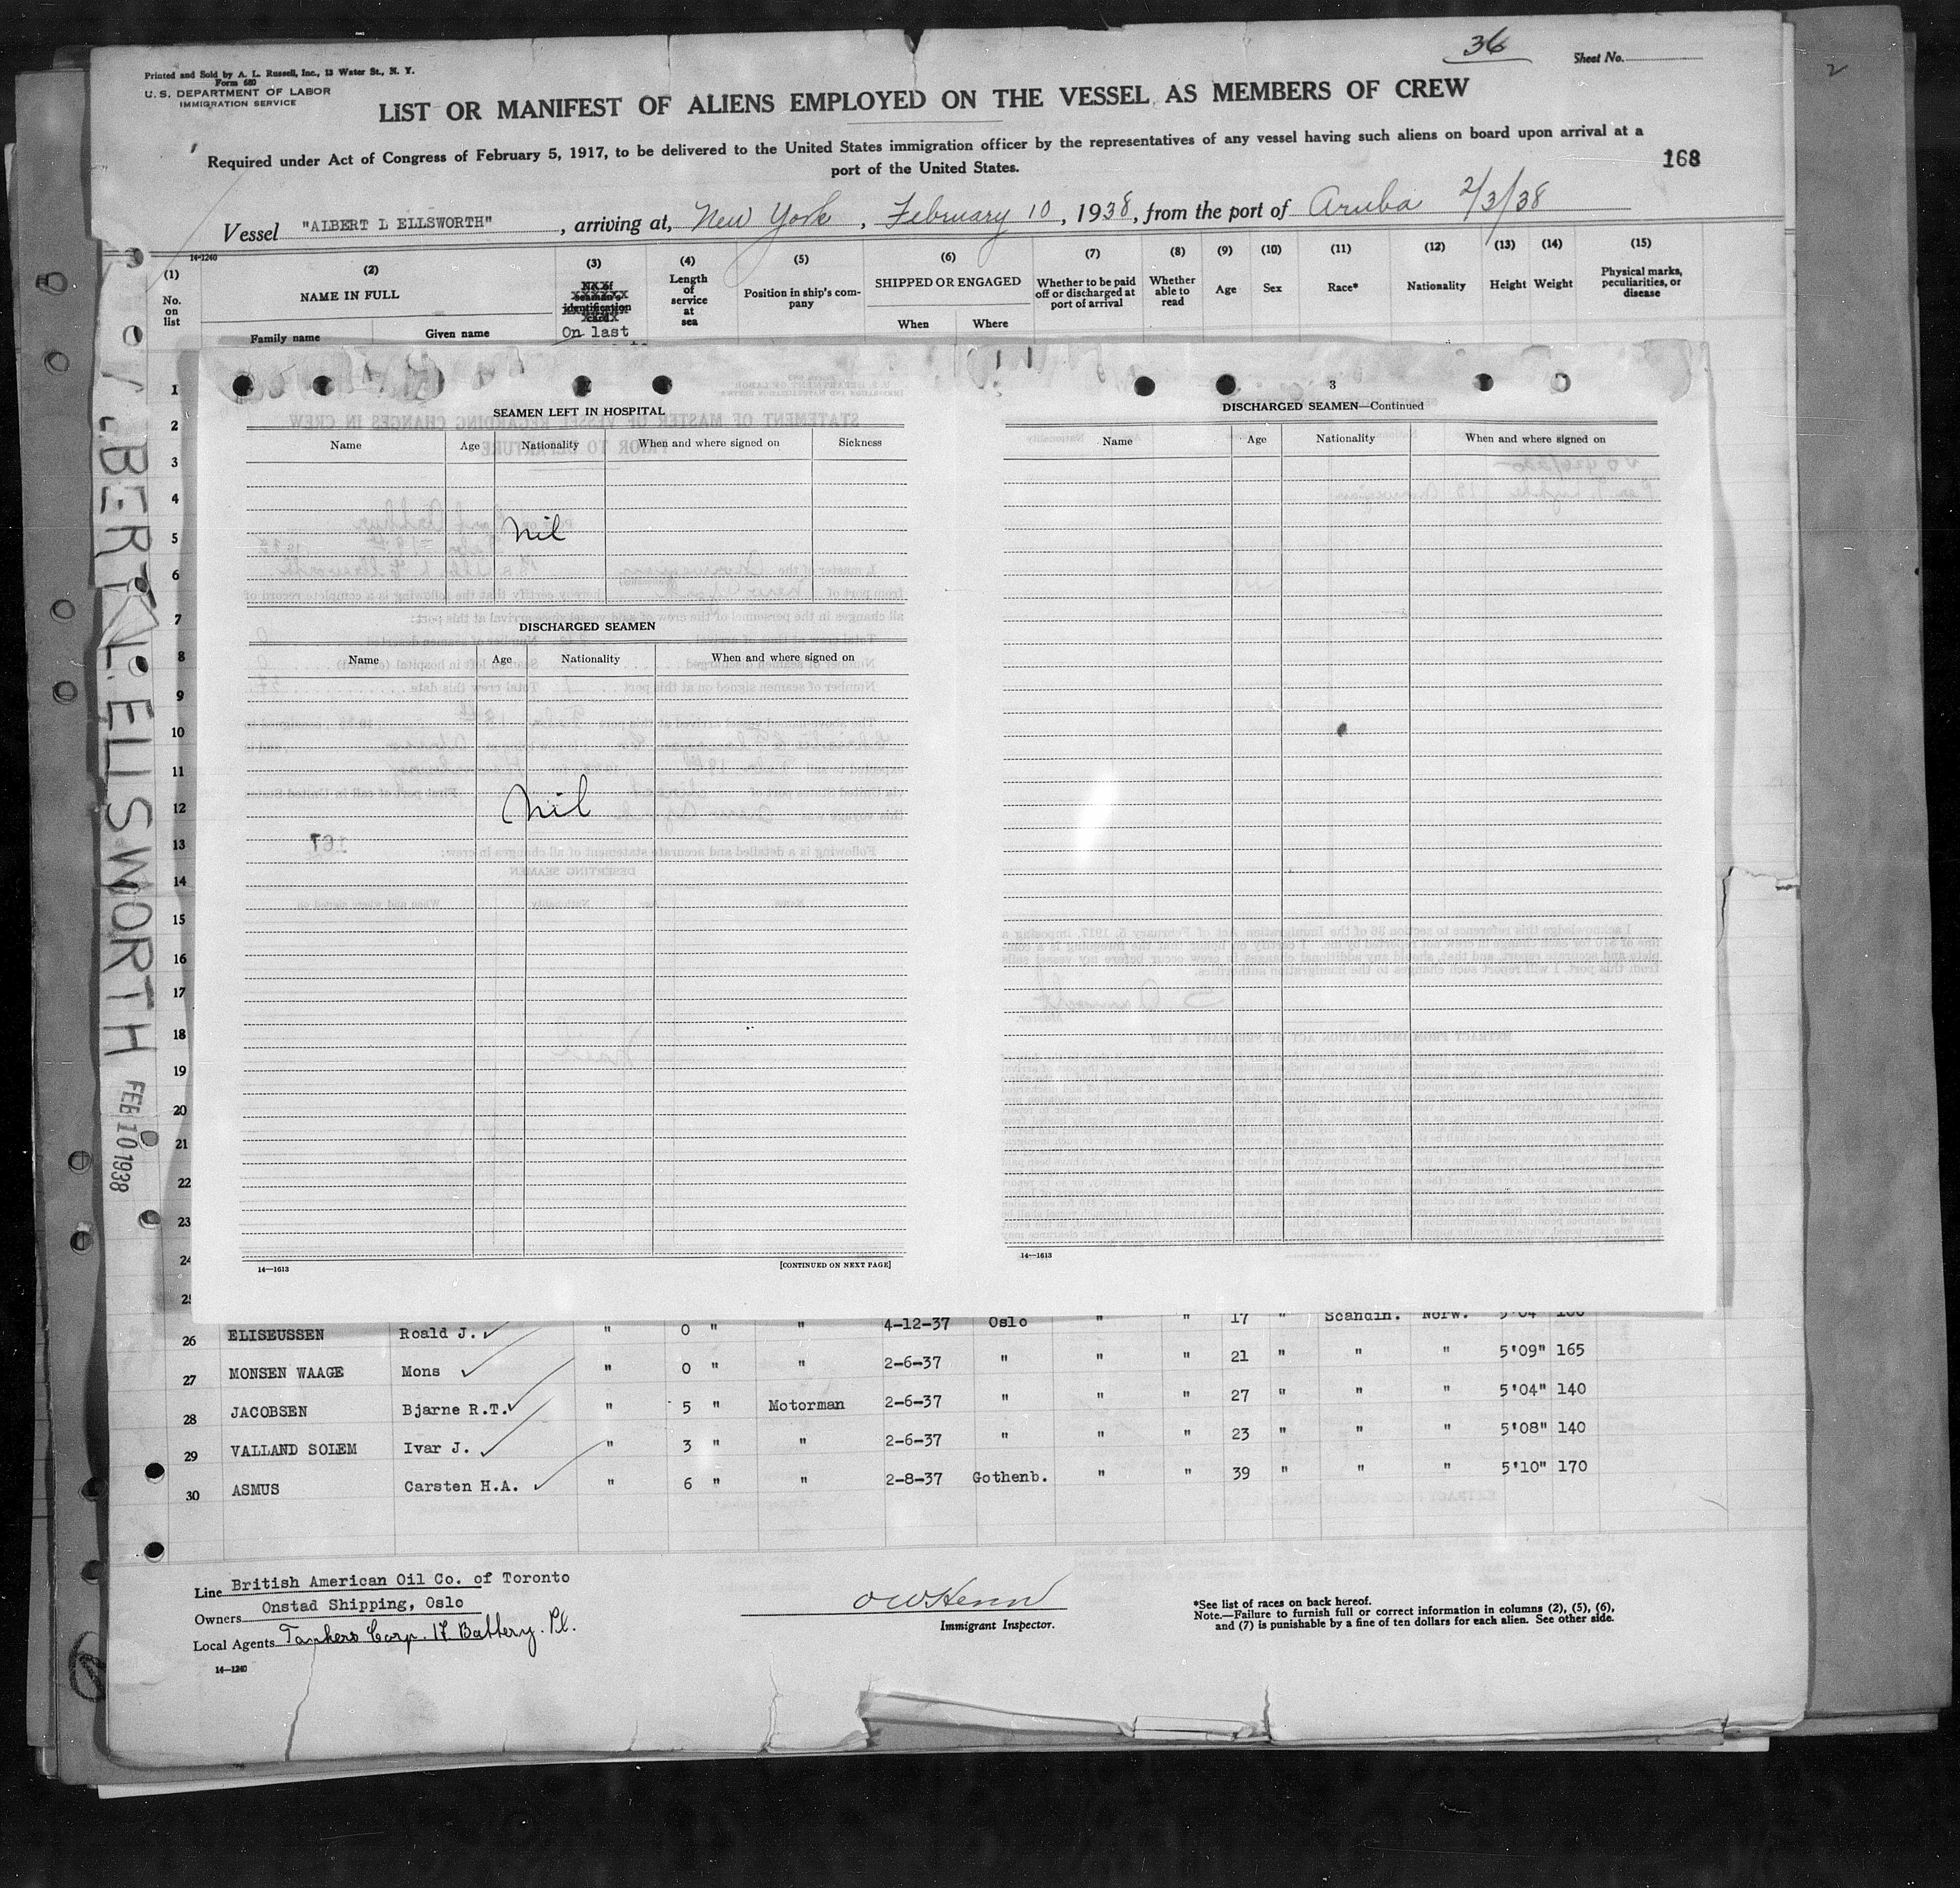 36
Sheet No.
Printed and Sold by A. L. Russell, Inc., 13 Water St., N. Y.
Form 680
U. S. DEPARTMENT OF LABOR
IMMIGRATION SERVICE
LIST OR MANIFEST OF ALIENS EMPLOYED ON THE VESSEL AS MEMBERS OF CREW
Required under Act of Congress of February 5, 1917, to be delivered to the United States immigration officer by the representatives of any vessel having such aliens on board upon arrival at a
port of the United States.
168
Vessel "ALBERT L ELLSWORTH", arriving at, New York, February 10, 1938, from the port of Aruba 2/3/38
14-1240
(1) No. on list
(2) NAME IN FULL
Family name Given name
(3) No. of seaman's identification card
On last
(4) Length of service at sea
(5) Position in ship's company
(6) SHIPPED OR ENGAGED
When Where
(7) Whether to be paid off or discharged at port of arrival
(8) Whether able to read
(9) Age
(10) Sex
(11) Race*
(12) Nationality
(13) Height
(14) Weight
(15) Physical marks, peculiarities, or disease
1
2
3
4
5
6
7
8
9
10
11
12
13
14
15
16
17
18
19
20
21
22
23
24
ELLSWORTH
FEB 10 1938
SEAMEN LEFT IN HOSPITAL
Name Age Nationality When and where signed on Sickness
nil
DISCHARGED SEAMEN
Name Age Nationality When and where signed on
nil
14—1613
[CONTINUED ON NEXT PAGE]
3
DISCHARGED SEAMEN—Continued
Name Age Nationality When and where signed on
14—1613
26 ELISEUSSEN Roald J. " 0 " " 4-12-37 Oslo " " 17 " Scandin. Norw. 5'04"
27 MONSEN WAAGE Mons " 0 " " 2-6-37 " " " 21 " " " 5'09" 165
28 JACOBSEN Bjarne R.T. " 5 " Motorman 2-6-37 " " " 27 " " " 5'04" 140
29 VALLAND SOLEM Ivar J. " 3 " " 2-6-37 " " " 23 " " " 5'08" 140
30 ASMUS Carsten H.A. " 6 " " 2-8-37 Gothenb. " " 39 " " " 5'10" 170
Line British American Oil Co. of Toronto
Owners Onstad Shipping, Oslo
Local Agents Tankers Corp. 17 Battery. Pl.
14—1240
Immigrant Inspector.
*See list of races on back hereof.
Note.—Failure to furnish full or correct information in columns (2), (5), (6),
and (7) is punishable by a fine of ten dollars for each alien. See other side.